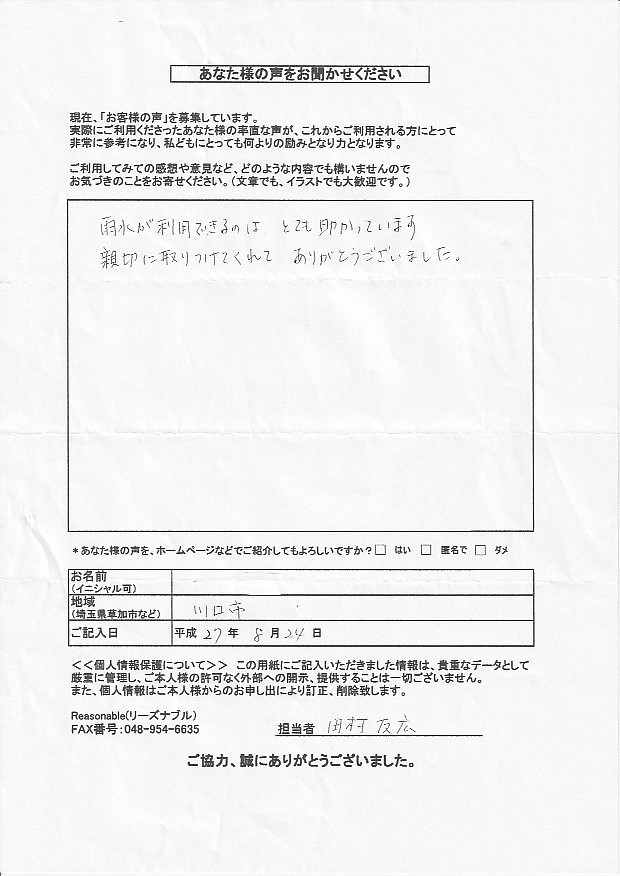 あなた様の声をお聞かせください
現在、「お客様の声」を募集しています。
実際にご利用くださったあなた様の率直な声が、これからご利用される方にとって
非常に参考になり、私どもにとっても何よりの励みとなり力となります。
ご利用してみての感想や意見など、どのような内容でも構いませんので
お気づきのことをお寄せください。（文章でも、イラストでも大歓迎です。）
雨水が利用できるのは とても助かっています
親切に取りつけてくれて ありがとうございました。
＊あなた様の声を、ホームページなどでご紹介してもよろしいですか？□ はい □ 匿名で □ ダメ
お名前
（イニシャル可）
地域
（埼玉県草加市など） 川口市
ご記入日 平成 27 年 8 月 24 日
＜＜個人情報保護について＞＞ この用紙にご記入いただきました情報は、貴重なデータとして
厳重に管理し、ご本人様の許可なく外部への開示、提供することは一切ございません。
また、個人情報はご本人様からのお申し出により訂正、削除致します。
Reasonable(リーズナブル)
FAX番号：048-954-6635 担当者 田村 友広
ご協力、誠にありがとうございました。